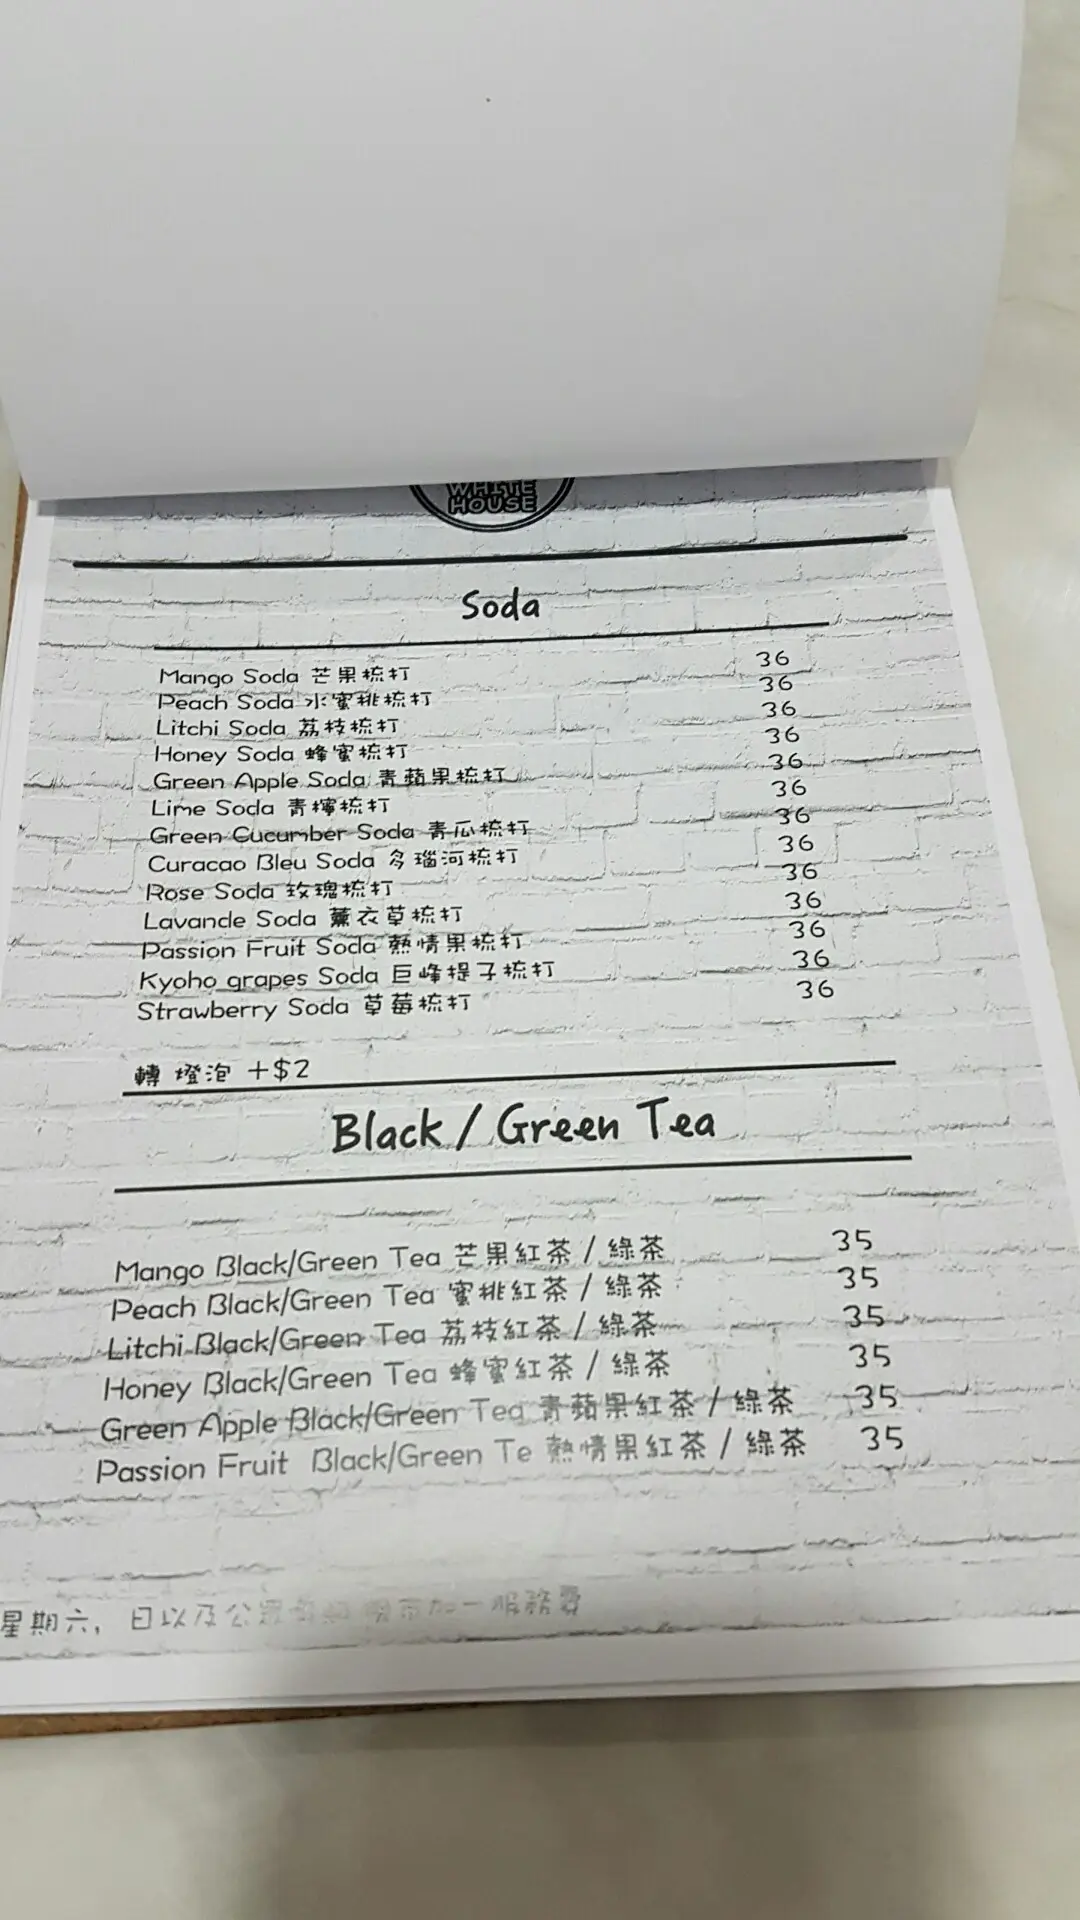 WHITE
HOUSE
Soda
Mango Soda 芒果梳打 36
Peach Soda 水蜜桃梳打 36
Litchi Soda 荔枝梳打 36
Honey Soda 蜂蜜梳打 36
Green Apple Soda 青蘋果梳打 36
Lime Soda 青檸梳打 36
Green Cucumber Soda 青瓜梳打 36
Curacao Bleu Soda 多瑙河梳打 36
Rose Soda 玫瑰梳打 36
Lavande Soda 薰衣草梳打 36
Passion Fruit Soda 熱情果梳打 36
Kyoho grapes Soda 巨峰提子梳打 36
Strawberry Soda 草莓梳打 36
轉 燈泡 +$2
Black / Green Tea
Mango Black/Green Tea 芒果紅茶 / 綠茶 35
Peach Black/Green Tea 蜜桃紅茶 / 綠茶 35
Litchi Black/Green Tea 荔枝紅茶 / 綠茶 35
Honey Black/Green Tea 蜂蜜紅茶 / 綠茶 35
Green Apple Black/Green Tea 青蘋果紅茶 / 綠茶 35
Passion Fruit Black/Green Te 熱情果紅茶 / 綠茶 35
星期六, 日以及公眾 加一服務費